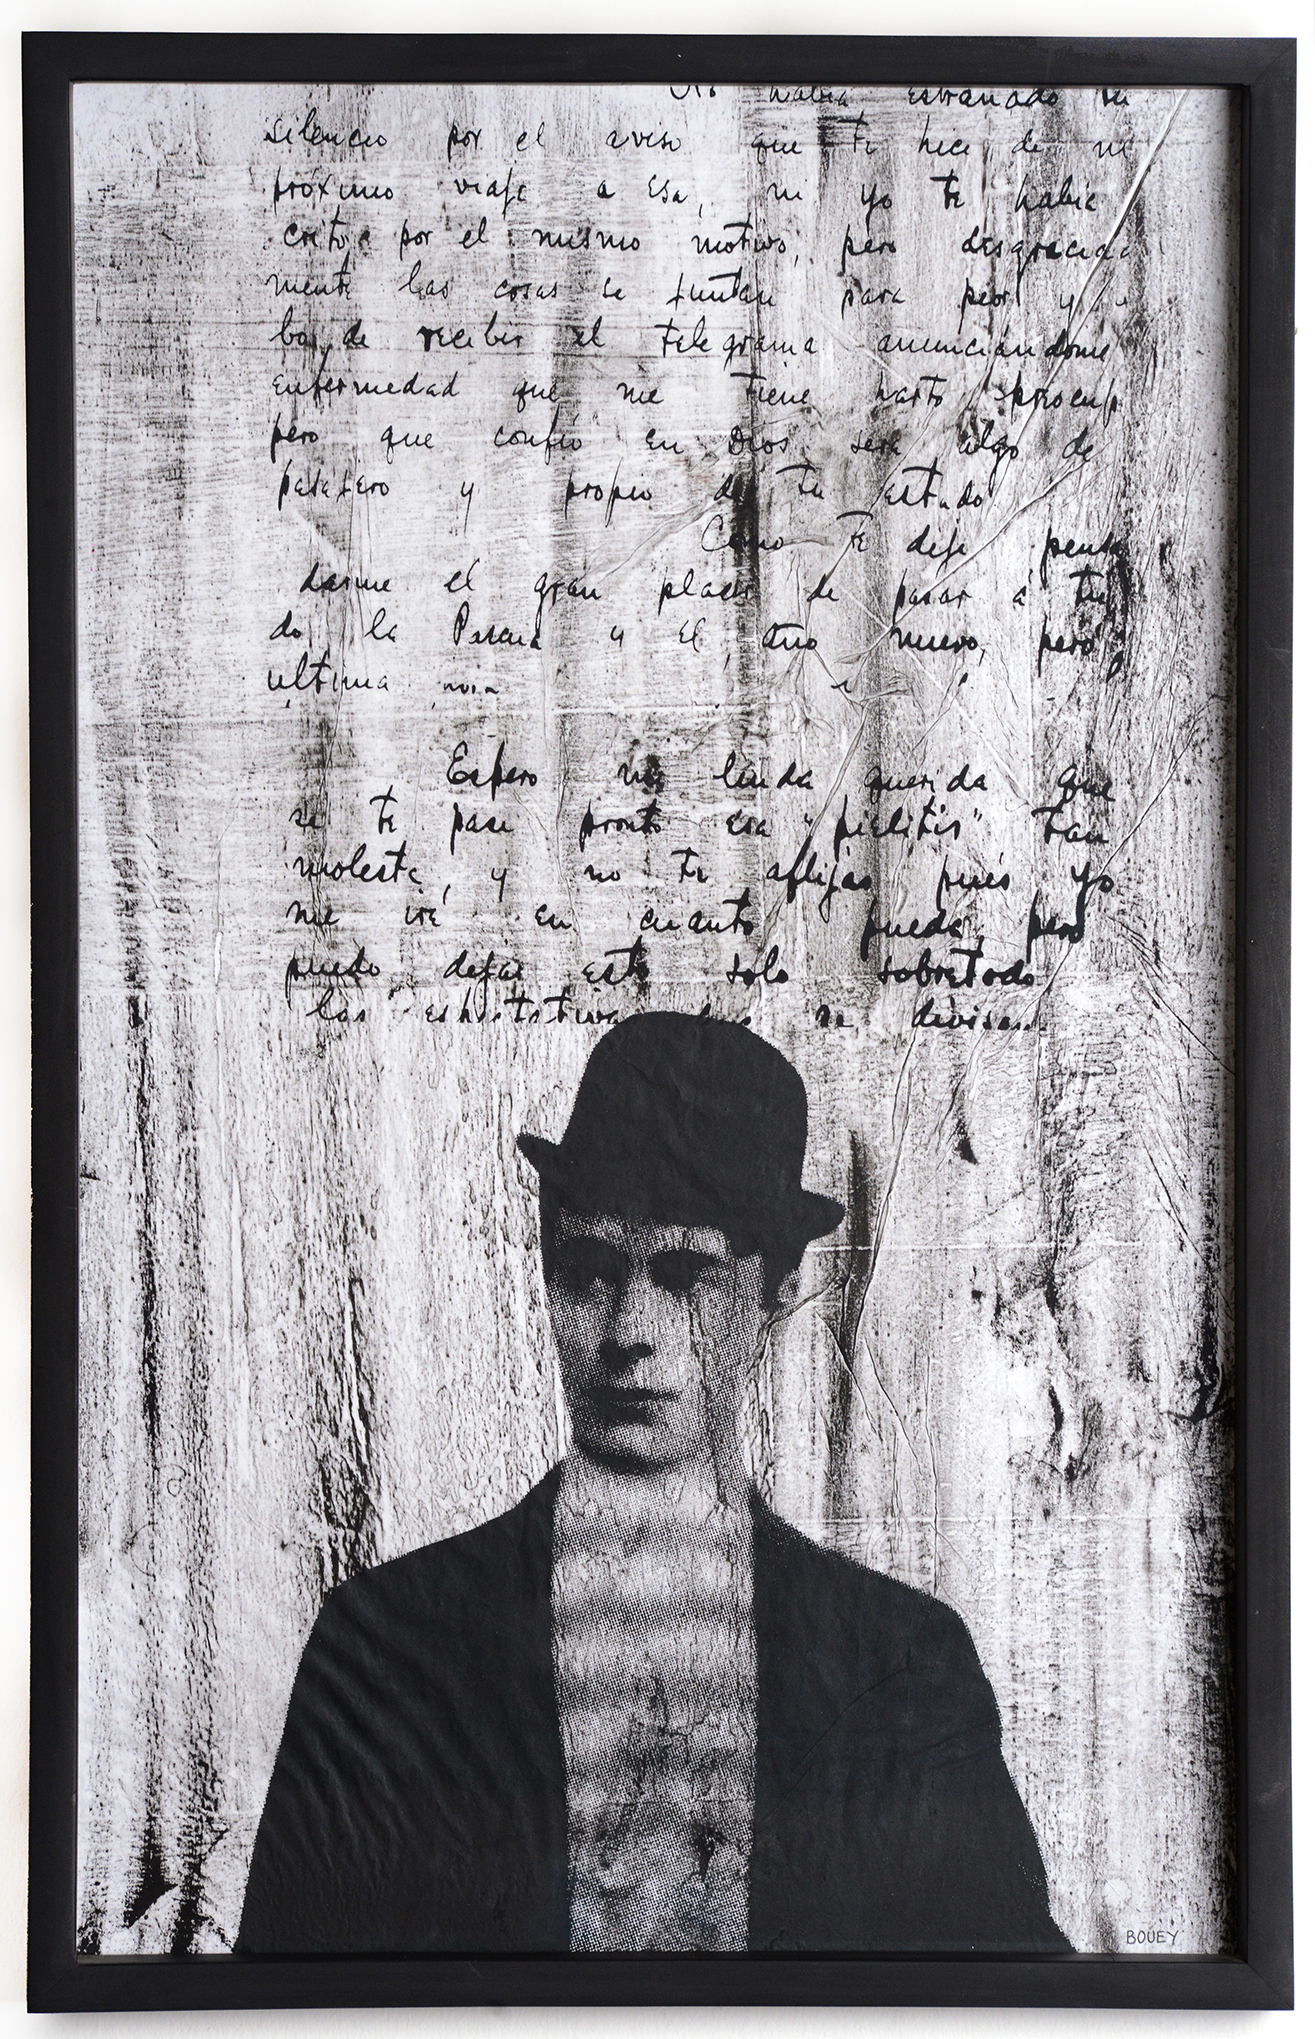 había estrañado tu
silencio por el aviso que te hice de mi
próximo viaje a esa, ni yo te había
crito por el mismo motivo, pero desgracia
mente las cosas se juntan para peor y
bo de recibir el telegrama anunciándome
enfermedad que me tiene harto preocup
pero que confío en Dios será algo de
pasajero y propio de tu estado
Como te dije pensa
darme el gran placer de pasar á tu
do la Pascua y el año nuevo, pero
ultima
Espero mi linda querida que
se te pase pronto esa "pielitis" tan
molesta, y no te aflijas pués yo
me iré en cuanto pueda, pero
puedo dejar esto solo sobretodo
las se divisan
BOUEY